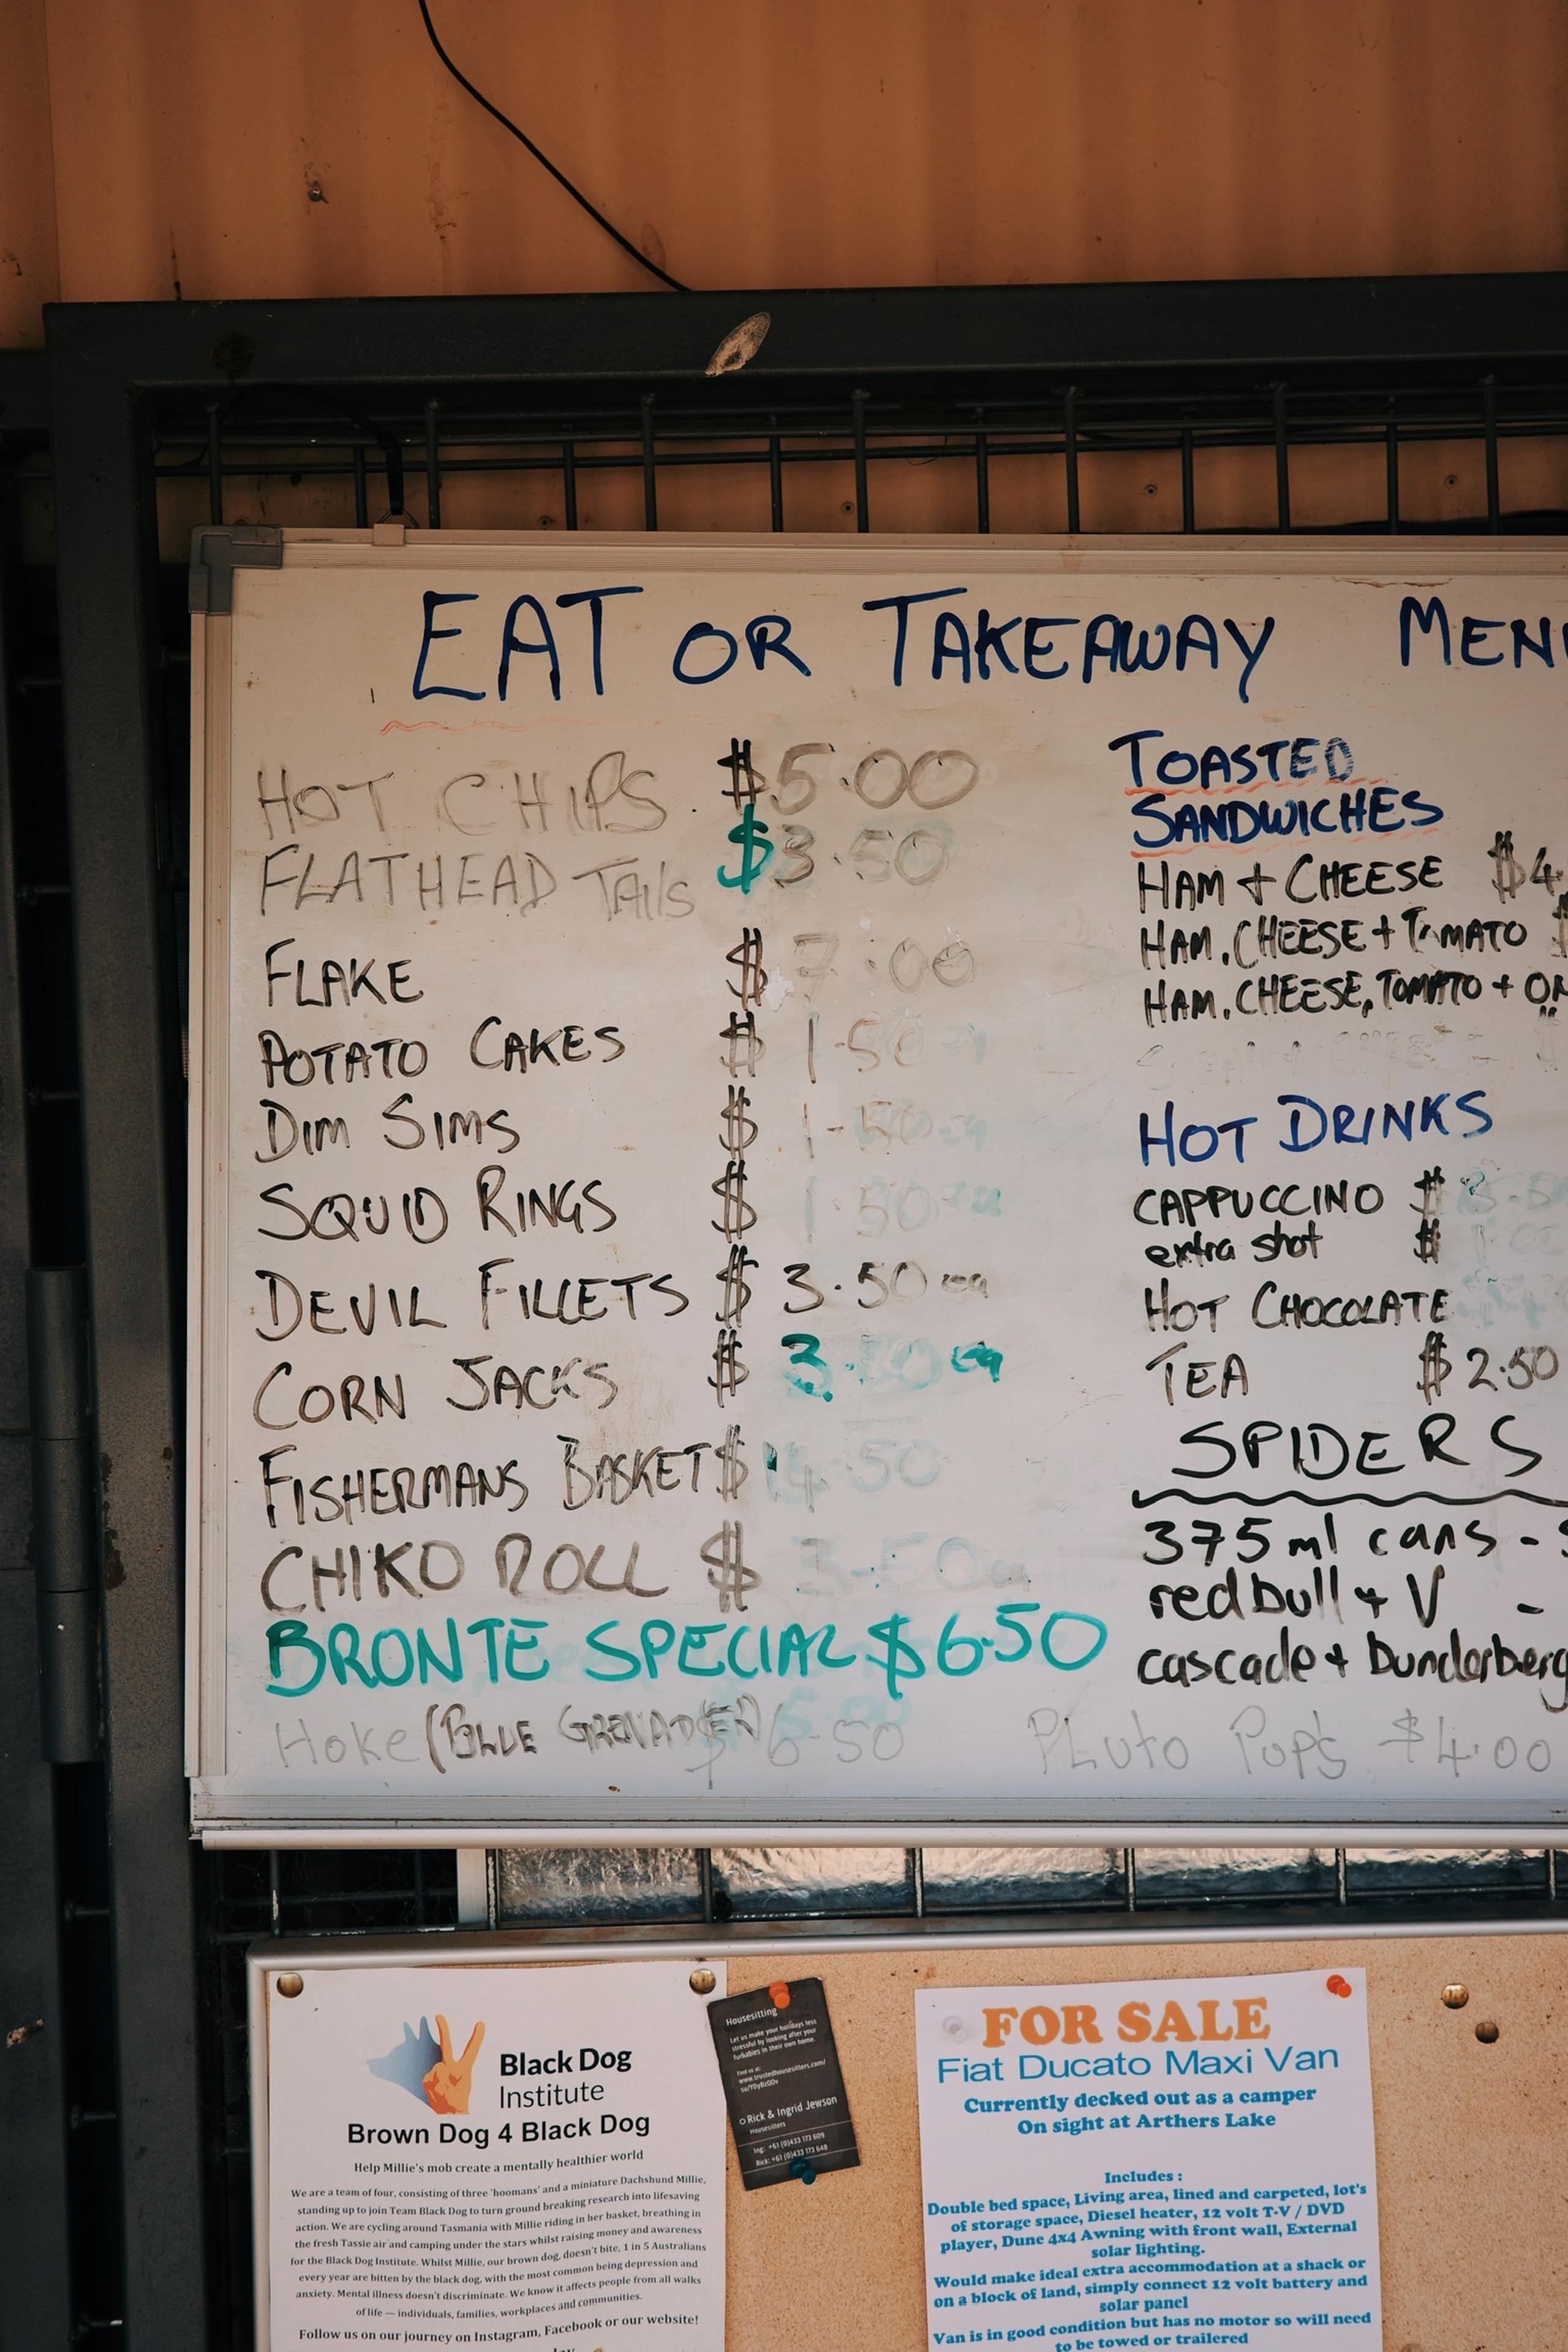 EAT OR TAKEAWAY MENU
HOT CHIPS $5.00
FLATHEAD TAils $3.50
FLAKE $7.00
POTATO CAKES $1.50
DIM SIMS $1-50
SQUID RINGS $1.50
DEVIL FILLETS $3.50 ea
CORN JACKS $3.50 ea
FISHERMANS BASKET $14.50
CHIKO ROLL $3-50
BRONTE SPECIAL $6.50
Hoke (BLUE GRENADIER) $6-50
TOASTED
SANDWICHES
HAM + CHEESE $4.
HAM, CHEESE + TOMATO $
HAM, CHEESE, TOMATO + ON
HOT DRINKS
CAPPUCCINO $
extra shot $
HOT CHOCOLATE
TEA $2.50
SPIDERS
375ml cans -
redbull + V -
cascade + Bunderberg
PLuto Pup's $4.00
Black Dog
Institute
Brown Dog 4 Black Dog
Help Millie's mob create a mentally healthier world
We are a team of four, consisting of three 'hoomans' and a miniature Dachshund Millie,
standing up to join Team Black Dog to turn ground breaking research into lifesaving
action. We are cycling around Tasmania with Millie riding in her basket, breathing in
the fresh Tassie air and camping under the stars whilst raising money and awareness
for the Black Dog Institute. Whilst Millie, our brown dog, doesn't bite, 1 in 5 Australians
every year are bitten by the black dog, with the most common being depression and
anxiety. Mental illness doesn't discriminate. We know it affects people from all walks
of life — individuals, families, workplaces and communities.
Follow us on our journey on Instagram, Facebook or our website!
Housesitting
Let us make your holidays less
stressful by looking after your
furbabies in their own home.
Find us at:
www.trustedhousesitters.com/
Rick & Ingrid Jewson
Housesitters
Ing: +61 (0)433 173 609
Rick: +61 (0)433 173 648
FOR SALE
Fiat Ducato Maxi Van
Currently decked out as a camper
On sight at Arthers Lake
Includes :
Double bed space, Living area, lined and carpeted, lot's
of storage space, Diesel heater, 12 volt T-V / DVD
player, Dune 4x4 Awning with front wall, External
solar lighting.
Would make ideal extra accommodation at a shack or
on a block of land, simply connect 12 volt battery and
solar panel
Van is in good condition but has no motor so will need
to be towed or trailered